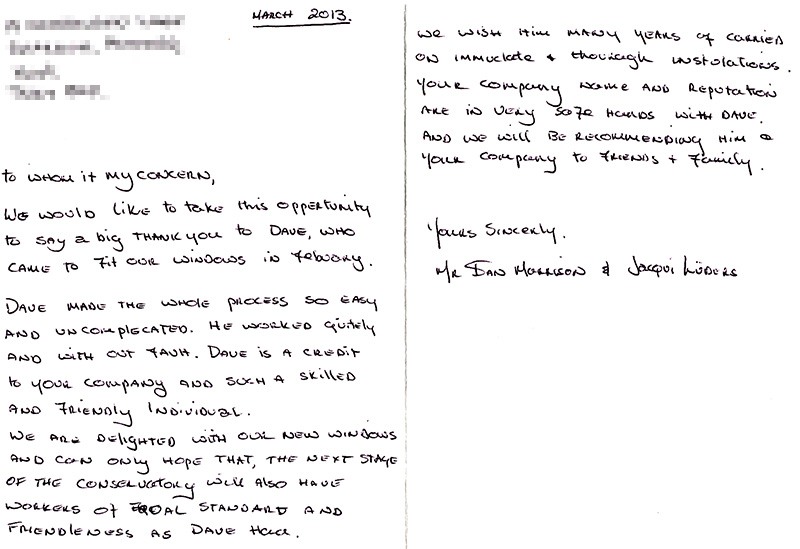 MARCH 2013.
TO WHOM IT MY CONCERN,
WE WOULD LIKE TO TAKE THIS OPPERTUNITY
TO SAY A BIG THANK YOU TO DAVE, WHO
CAME TO FIT OUR WINDOWS IN FEBUORY.
DAVE MADE THE WHOLE PROCESS SO EASY
AND UNCOMPLECATED. HE WORKED QUITELY
AND WITH OUT FAUH. DAVE IS A CREDIT
TO YOUR COMPANY AND SUCH A SKILLED
AND FRIENDLY INDIVIDUAL.
WE ARE DELIGHTED WITH OUR NEW WINDOWS
AND CAN ONLY HOPE THAT, THE NEXT STAGE
OF THE CONSERVATORY WILL ALSO HAVE
WORKERS OF EQUAL STANDARD AND
FRIENDLENESS AS DAVE HAD.
WE WISH HIM MANY YEARS OF CARRIED
ON IMMUCLATE + THOURAGH INSTOLATIONS.
YOUR COMPANY NAME AND REPUTATION
ARE IN VERY SAFE HANDS WITH DAVE.
AND WE WILL BE RECOMMENDING HIM &
YOUR COMPANY TO FRIENDS + FAMILY.
YOURS SINCERLY.
MR IAN MORRISON & JACQUI LÜDERS